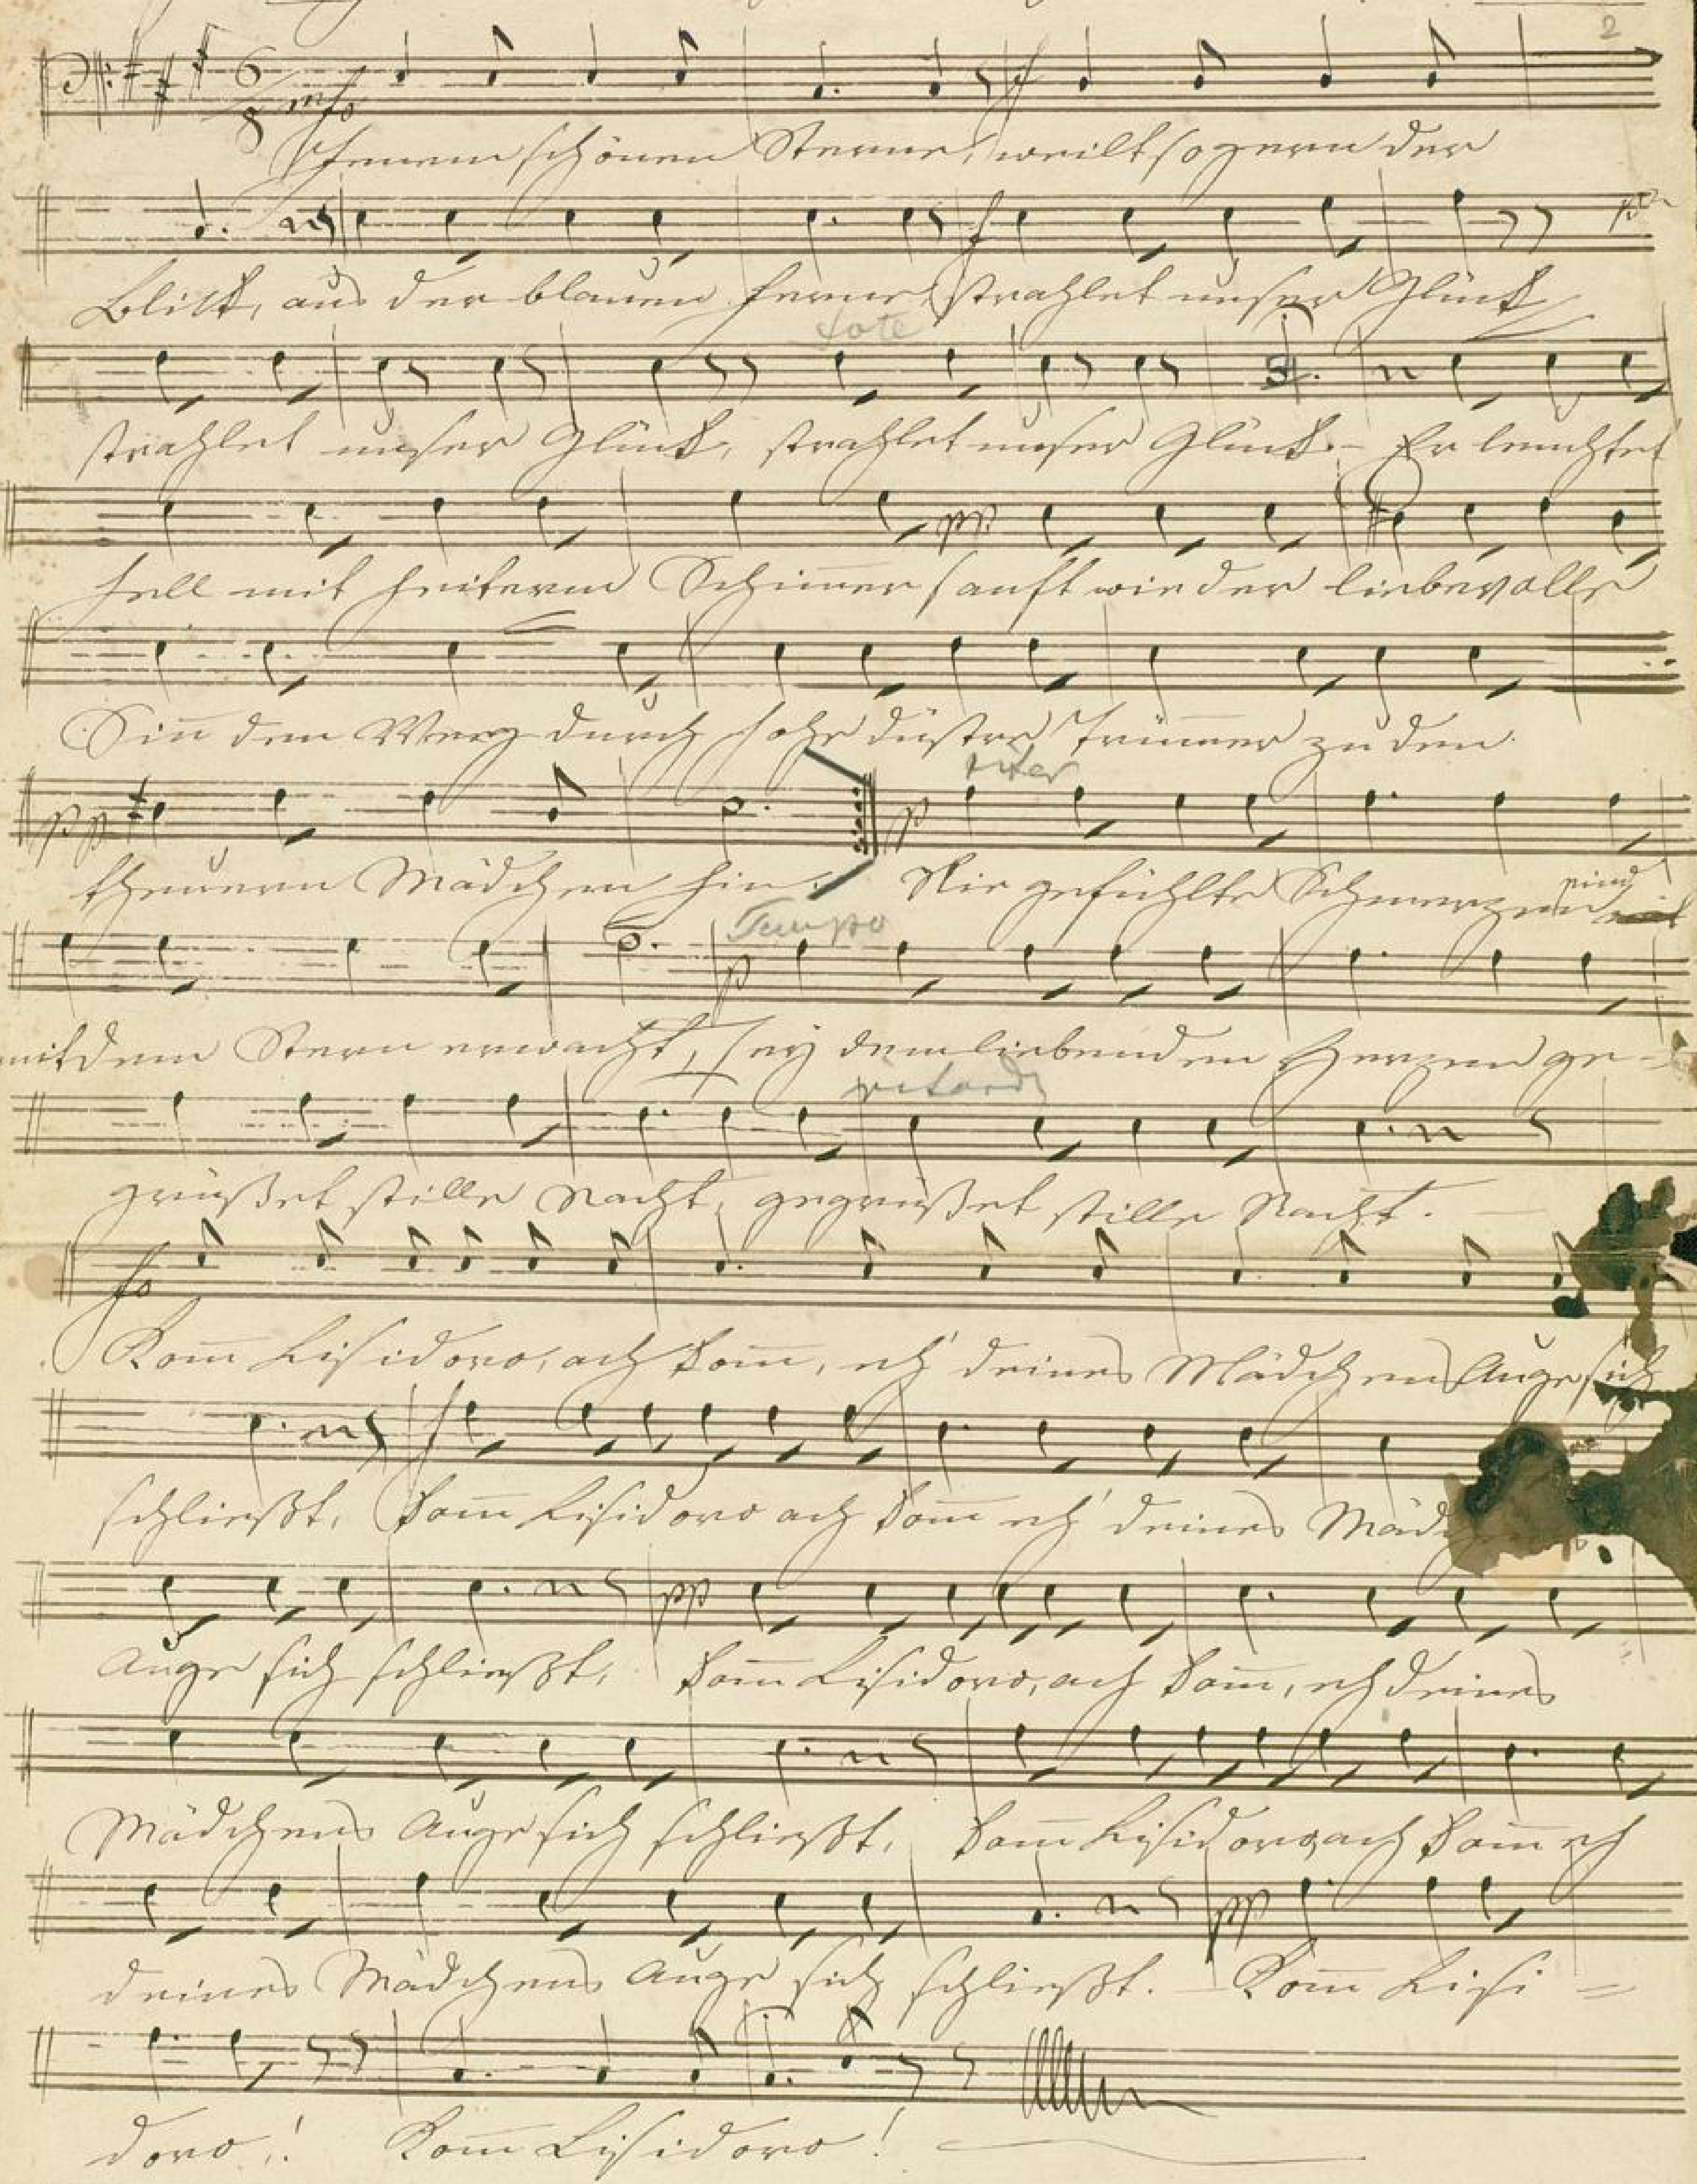 2
6/8 mfo f
Jenem schönen Sterne, weilt so gern der
f p
Blick, aus der blauen Ferne, strahlet unser Glück
strahlet unser Glück, strahlet unser Glück. – Er leuchtet
pp
hell mit heiterm Schim̄er sanft wie der liebevolle
Sin̄ den Weg durch hohe düstre Trüm̄er zu den
pp p
theuern Mädchen hin. Nie gefühlte Schmerzen sind
Tempo
p
mit dem Stern erwacht, sey dem liebenden Herzen ge-
ritard
grüßet stille Nacht, gegrüßet stille Nacht. –
fo
Kom̄ Lisidoro, ach kom̄, eh' deines Mädchens Auge sich
f
schließt, kom̄ Lisidoro ach kom̄ eh' deines
pp
Auge sich schließt, kom̄ Lisidoro, ach kom̄, eh deines
Mädchens Auge sich schließt, kom̄ Lisidoro, ach kom̄ eh
pp
deines Mädchens Auge sich schließt. – Kom̄ Lisi =
doro! Kom̄ Lisidoro!